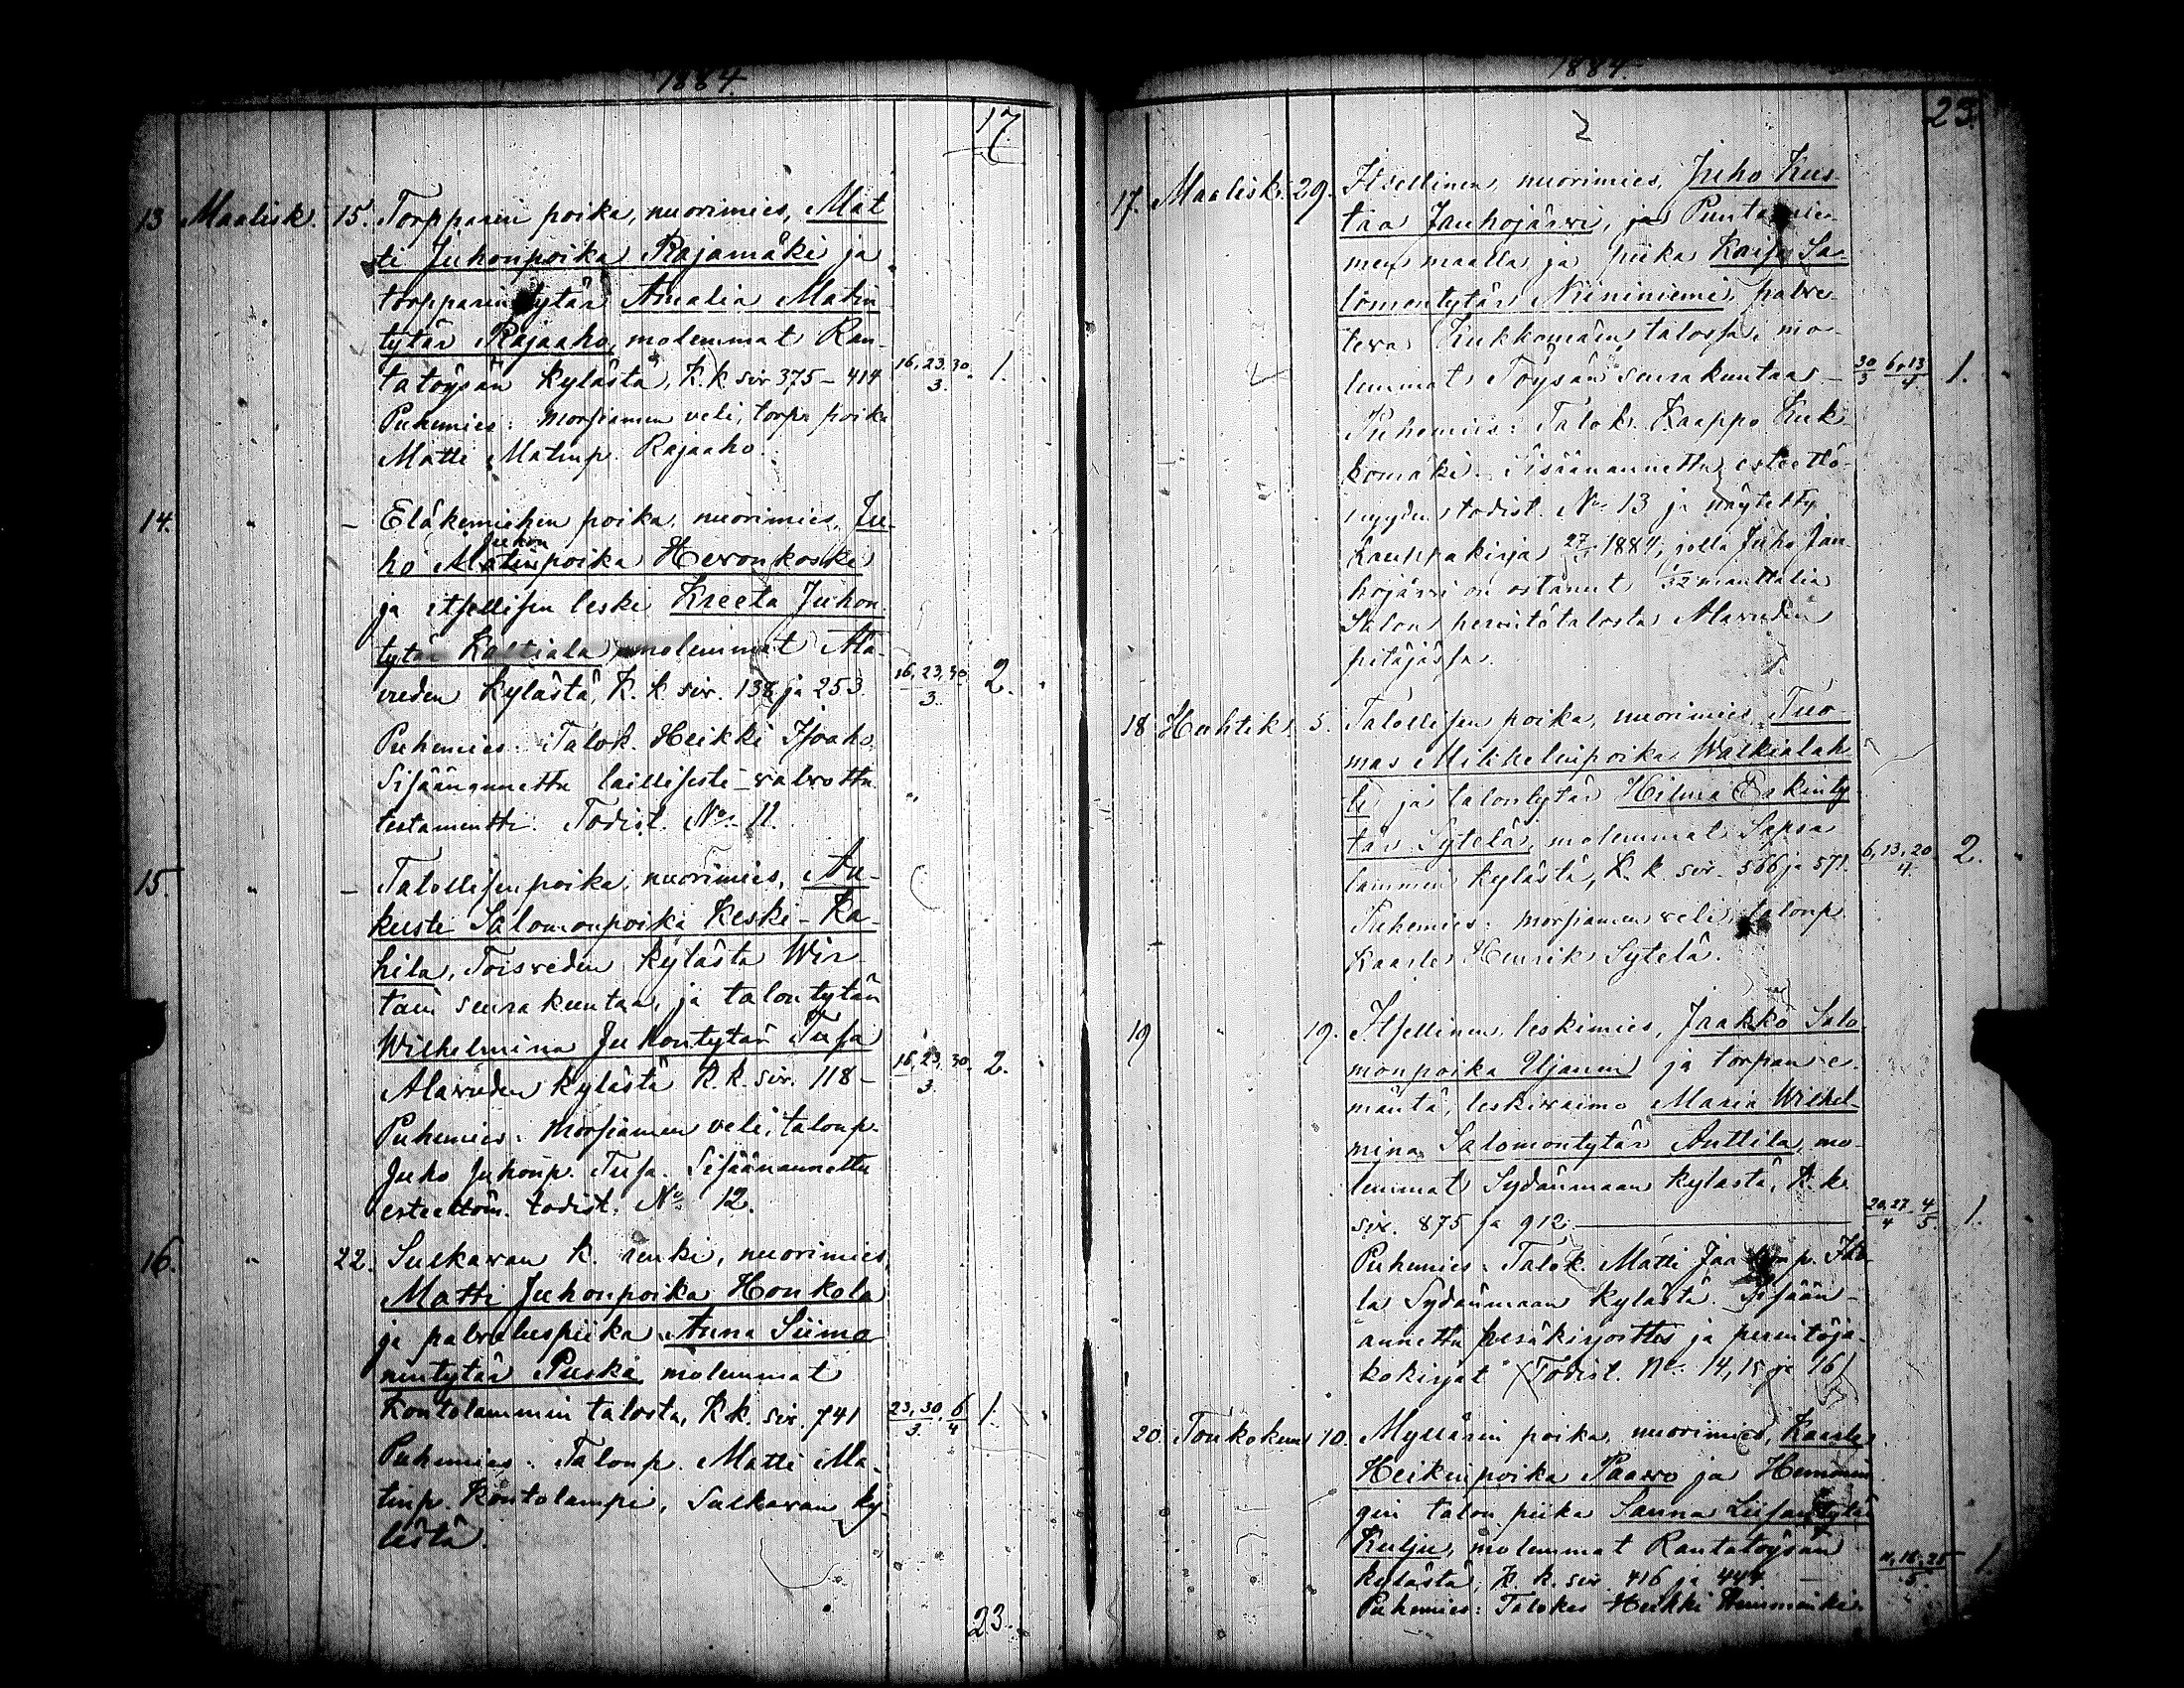 1884.
17
13 Maalisk. 15. Torpparin poika, nuorimies, Mat
ti Juhonpoika Rajamäki ja
torpparin tytär Amalia Matin
tytär Rajaaho, molemmat Ran-
tatöysän kylästä, K. k. siv 375 – 414 16, 23, 30. 3. 1.
Puhemies: Morsiamen veli, torp. poika
Matti Matinp. Rajaaho.
14. " – Eläkemiehen poika, nuorimies, Ju-
Juhon
ho Matinpoika Heronkoski
ja itsellisen leski Kreeta Juhon
tytär Kaltiala, molemmat Ala-
vuden kylästä, K. k. siv. 138 ja 253. 16, 23, 30. 3. 2.
Puhemies: Talok. Heikki Isoaho.
Sisäänannettu laillisesti valvottu
testamentti. Todist. No. 11.
15. " – Talollisen poika, nuorimies, Au-
kusti Salomonpoika Keski-Ka-
hila, Toisveden kylästä Wir-
tain seurakuntaa, ja talon tytär
Wilhelmina Juhontytär Tusa
Alavuden kylästä K. k. siv. 118 – 16, 23, 30. 3. 2.
Puhemies: Morsiamen veli, talonp.
Juho Juhonp. Tusa. Sisäänannettu
esteettöm. todist. No 12.
16. " 22. Sulkavan k. renki, nuorimies,
Matti Juhonpoika Honkola
ja palveluspiika Anna Siimo
nintytär Puska molemmat
Kontolammin talosta, K. k. siv. 741 23, 30. 3 6 4 1.
Puhemies: Talonp. Matti Ma-
tinp. Kontolampi, Sulkavan ky-
lästä.
23.
1884.
23.
17. Maalisk. 29. Itsellinen, nuorimies, Juho Kus-
taa Jauhojärvi, ja
men maalla ja piika Kaisa Sa-
lomontytär Niininiemi, palve-
leva Kukkomäen talossa, mo-
lemmat Töysän seurakuntaa – 30 3 6, 13 4. 1.
Puhemies: Talok. Kaappo Kuk-
komäki. Sisäänannettu esteettö-
myyden todist. No 13 ja näytetty
kauppakirja 1884, jolla Juho Jau-
hojärvi on ostanut 1/32 manttalia
Salon perintötalosta Alavuden
pitäjässä.
18 Huhtik. 5. Talollisen poika, nuorimies, Tuo-
mas Mikkelinpoika Walkialah-
ti ja talontytär Hilma Eskinty-
tär Sytelä, molemmat Sapsa
lammin kylästä, K. k. siv. 566 ja 571. 6, 13, 20 4. 2.
Puhemies: morsiamen veli, talonp.
Kaarle Henrik Sytelä.
19 " 19. Itsellinen, leskimies, Jaakko Salo
monpoika Ujanen ja torpan e-
mäntä, leskivaimo Maria Wilhel-
mina Salomontytär Anttila, mo-
lemmat Sydänmaan kylästä, K. k.
siv. 875 ja 912. 20, 27 4 4 5. 1.
Puhemies: Talok. Matti
la Sydänmaan kylästä. Sisään-
annettu pesäkirjoitus ja perintöja-
kokirjat (Todist. No. 14, 15 ja 16)
20. Toukokuu 10. Myllärin poika, nuorimies, Kaarle
Heikinpoika Paavo ja Hemmin
gin talon piika Sanna Liisantytär
Kulju, molemmat Rantatöysän
kylästä, K. k. siv. 416 ja 444. 11, 18, 25 5. 1.
Puhemies: Talokas Heikki Hemminki.